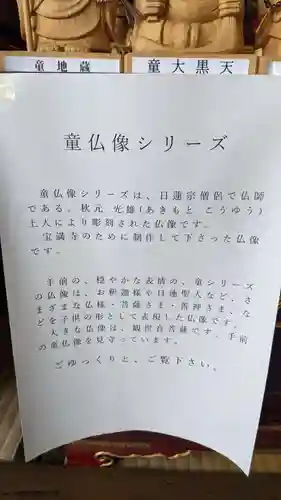 童地蔵
童大黒天
童仏像シリーズ
童仏像シリーズは、日蓮宗僧侶で仏師
である、秋元 光雄(あきもと こうゆう)
上人により彫刻された仏像です。
宝満寺のために制作して下さった仏像
です。
手前の、穏やかな表情の、童シリーズ
の仏像は、お釈迦様や日蓮聖人など、さ
まざまな仏様・菩薩さま・善神さま、な
どを子供の形として表現した仏像です。
大きな仏像は、観世音菩薩です。手前
の童仏像を見守っています。
ごゆっくりと、ご覧下さい。